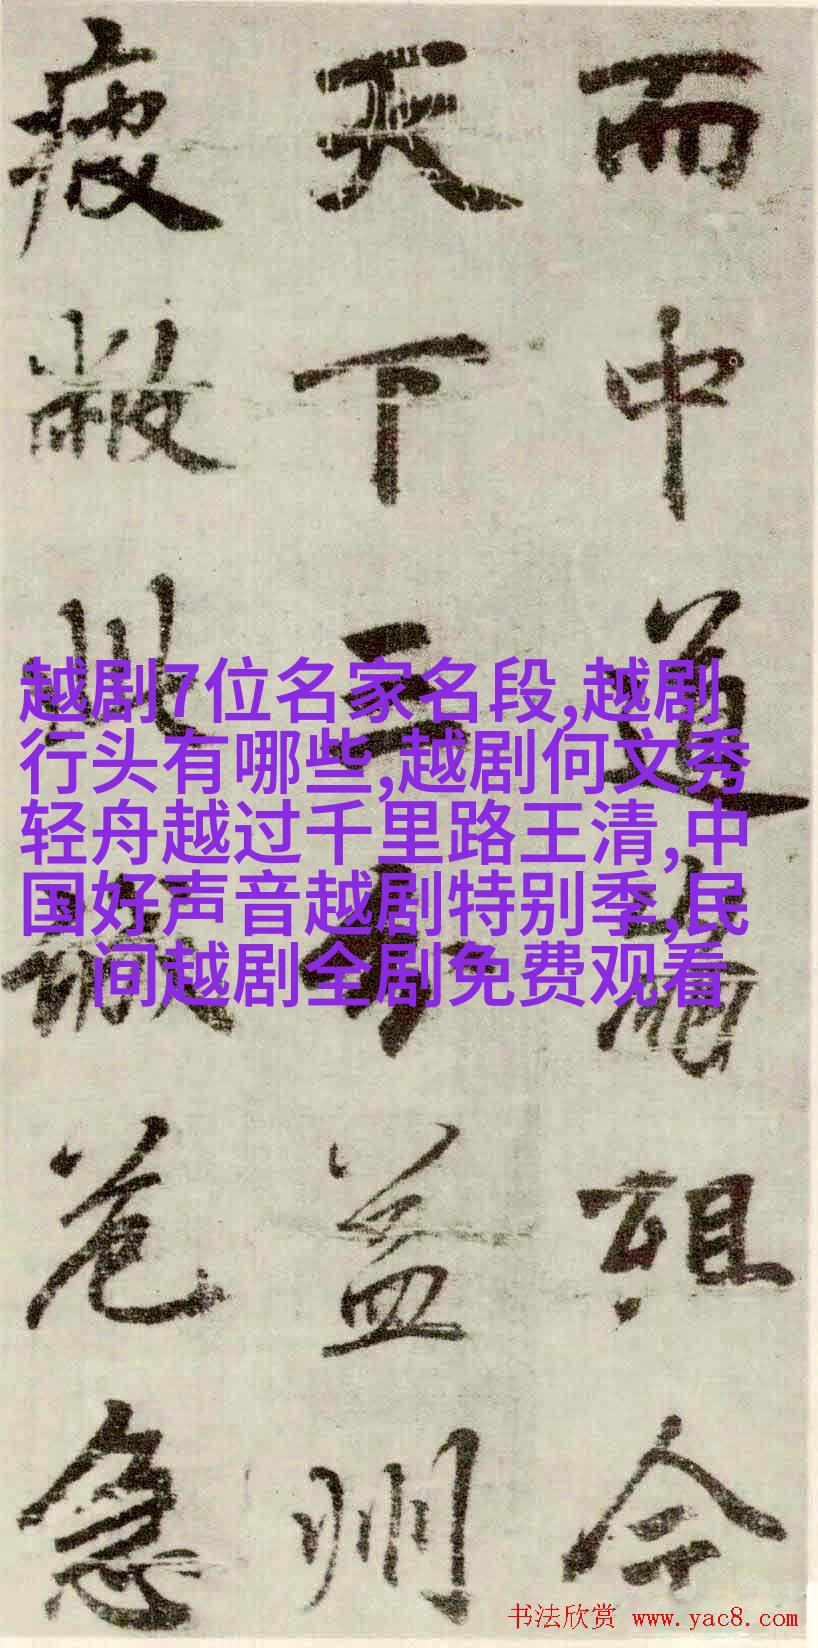 而中道崩殂今
天下三分益州
疲敝此誠危急
越剧7位名家名段,越剧
行头有哪些,越剧何文秀
轻舟越过千里路王清,中
国好声音越剧特别季,民
间越剧全剧免费观看
书法欣赏 www.yac8.com